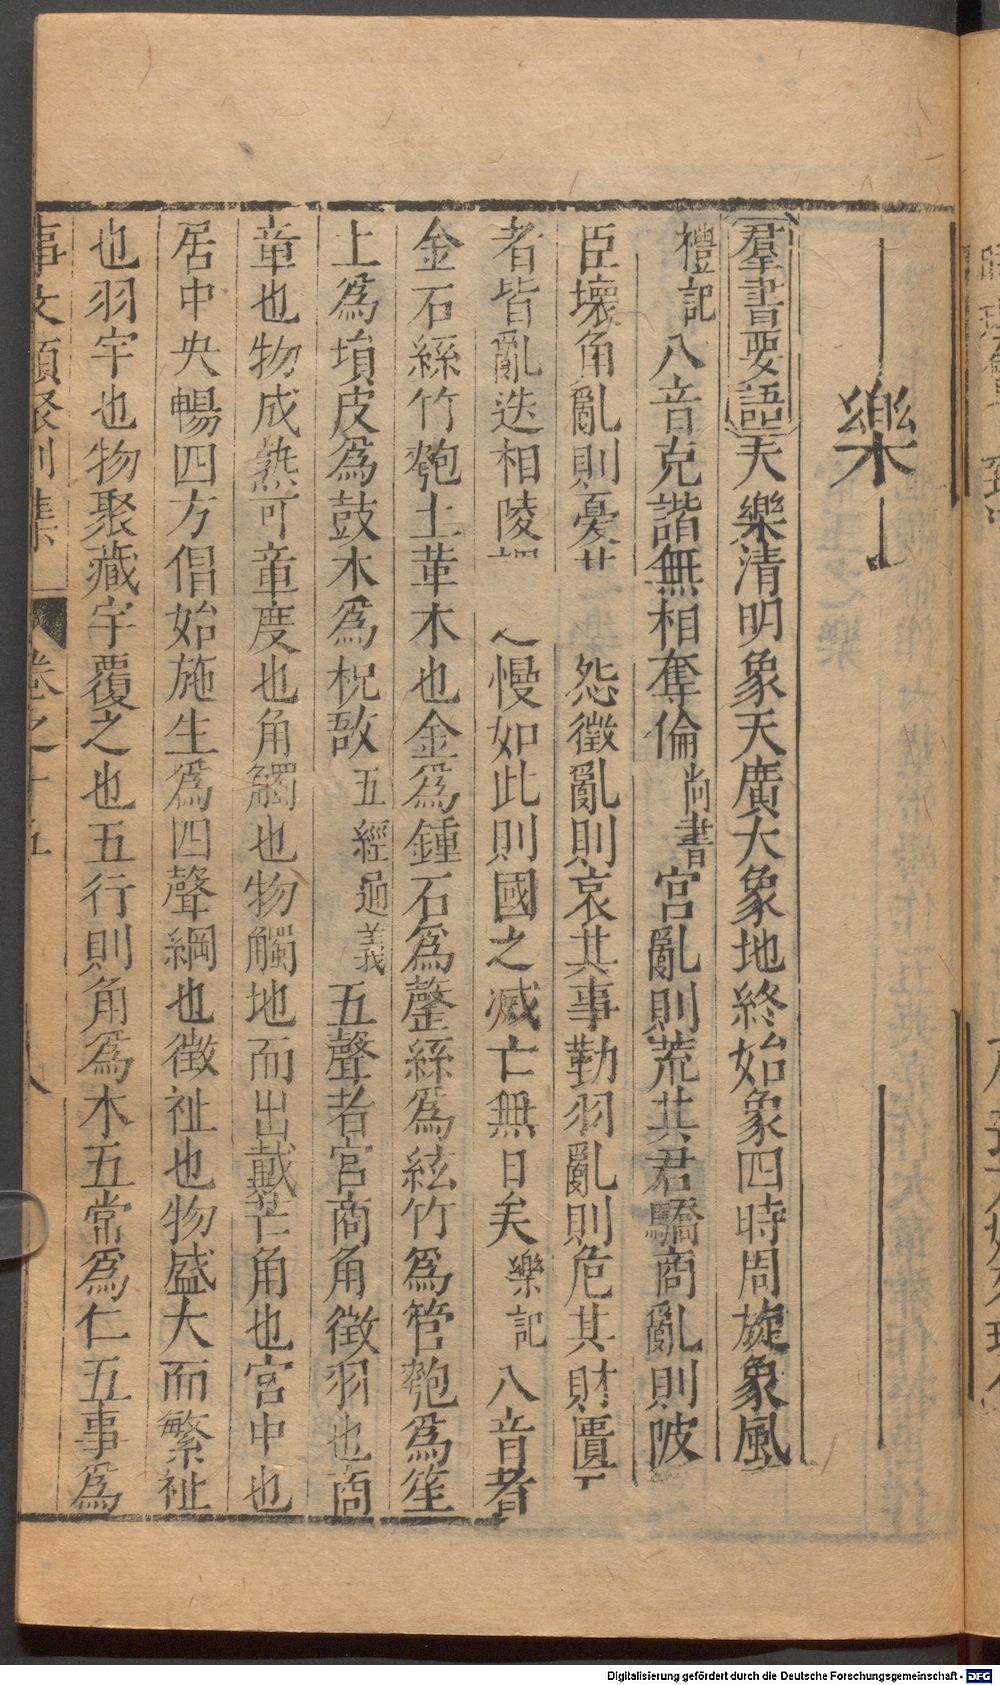 樂
羣書要語天樂清明象天廣大象地終始象四時周旋象風
禮記八音克諧無相奪倫尚書宮亂則荒其君驕商亂則陂
臣壞角亂則憂其怨徵亂則哀其事勤羽亂則危其財匱五
者皆亂迭相陵謂之慢如此則國之滅亡無日矣樂記八音者
金石絲竹匏土革木也金爲鍾石爲磬絲爲絃竹爲管匏爲笙
土爲塤皮爲鼓木爲柷敔五經通義五聲者宮商角徵羽也商
章也物成熟可章度也角觸也物觸地而出戴芒角也宮中也
居中央暢四方倡始施生爲四聲綱也徵祉也物盛大而繁祉
也羽宇也物聚藏宇覆之也五行則角爲木五常爲仁五事爲
事文類聚別集 卷之十五 八
Digitalisierung gefördert durch die Deutsche Forschungsgemeinschaft - DFG